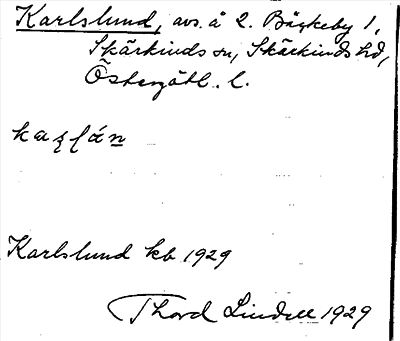 Karlslund, avs. å 2. Bäckeby 1,
Skärkinds sn, Skärkinds hd,
Östergötl. l.
Karlslund kb 1929
Thord Lindell 1929